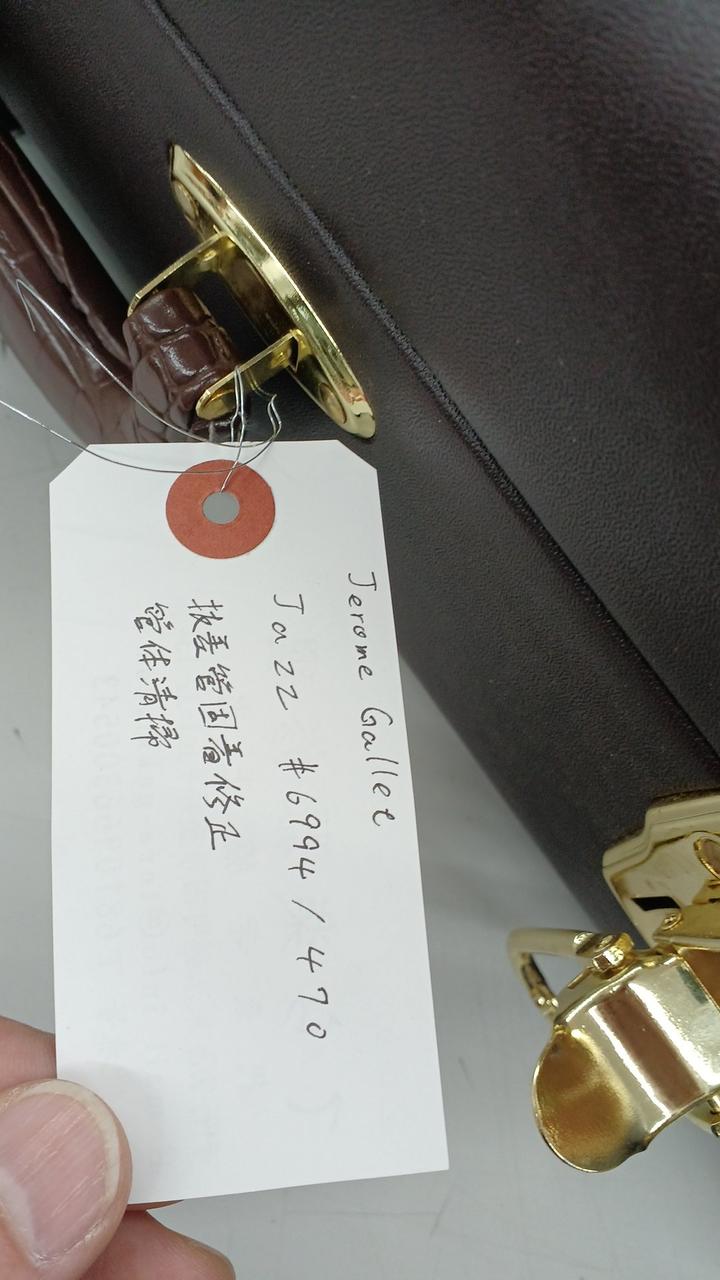 Jerome Gallet
Jazz #6994/470
抜差管固着修正
管体清掃